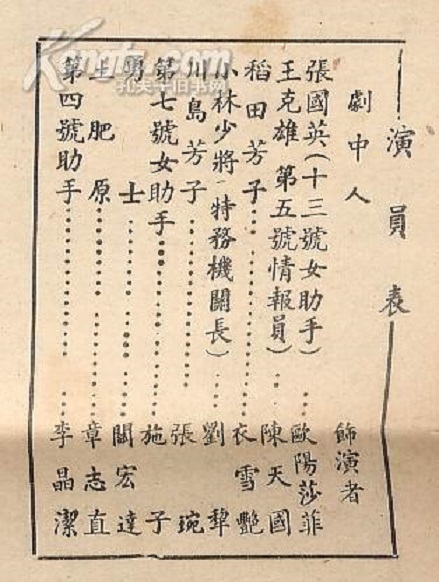 演員表
劇中人 飾演者
張國英(十三號女助手)……歐陽莎菲
王克雄 第五號情報員)……陳天國
稻田芳子……衣雪艷
小林少將(特務機關長)……劉犁
川島芳子……張琬
第七號女助手……施子
勇士……關宏達
土肥原……章志直
第四號助手……李晶潔
Kongfz.com
孔夫子旧书网